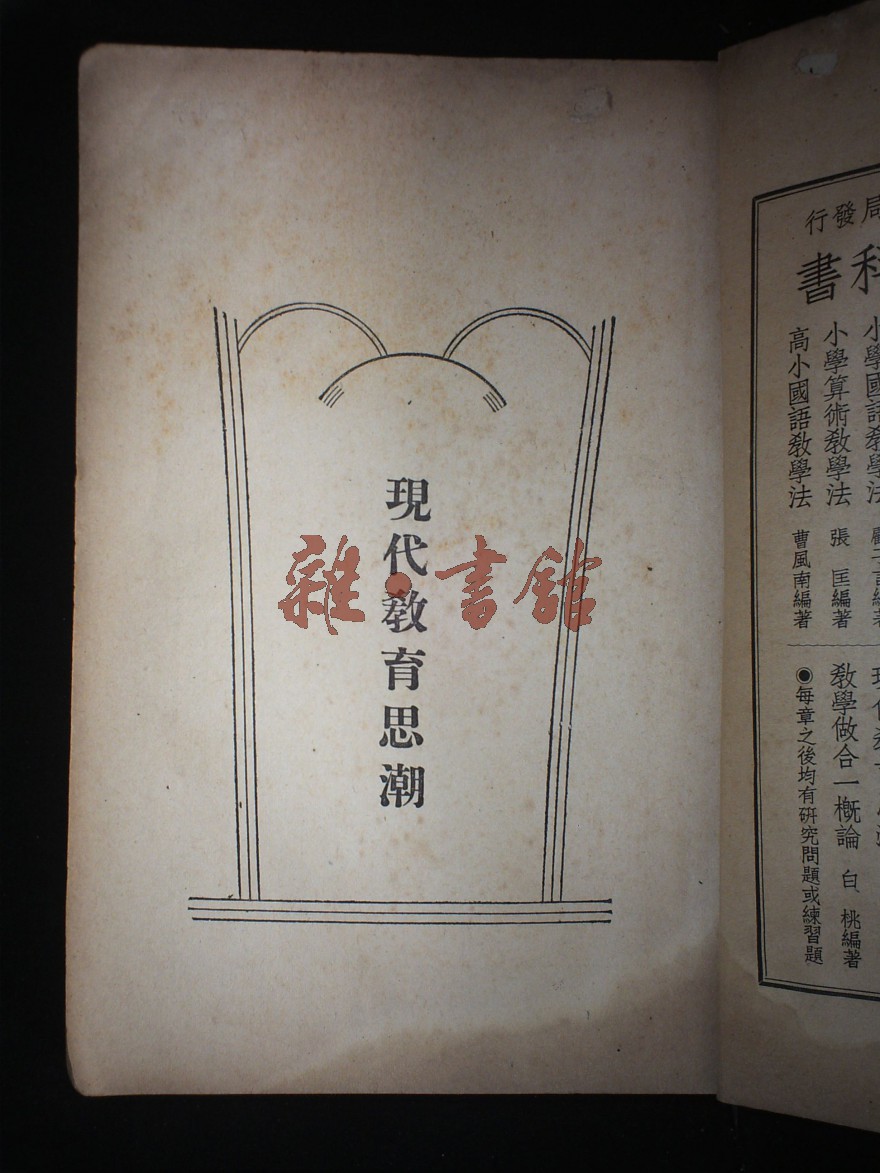 現代教育思潮
雜·書館
局發行
科書
小學國語教學法
小學算術教學法 張匡編著
高小國語教學法 曹風南編著
教學做合一概論 白桃編著
◉每章之後均有研究問題或練習題